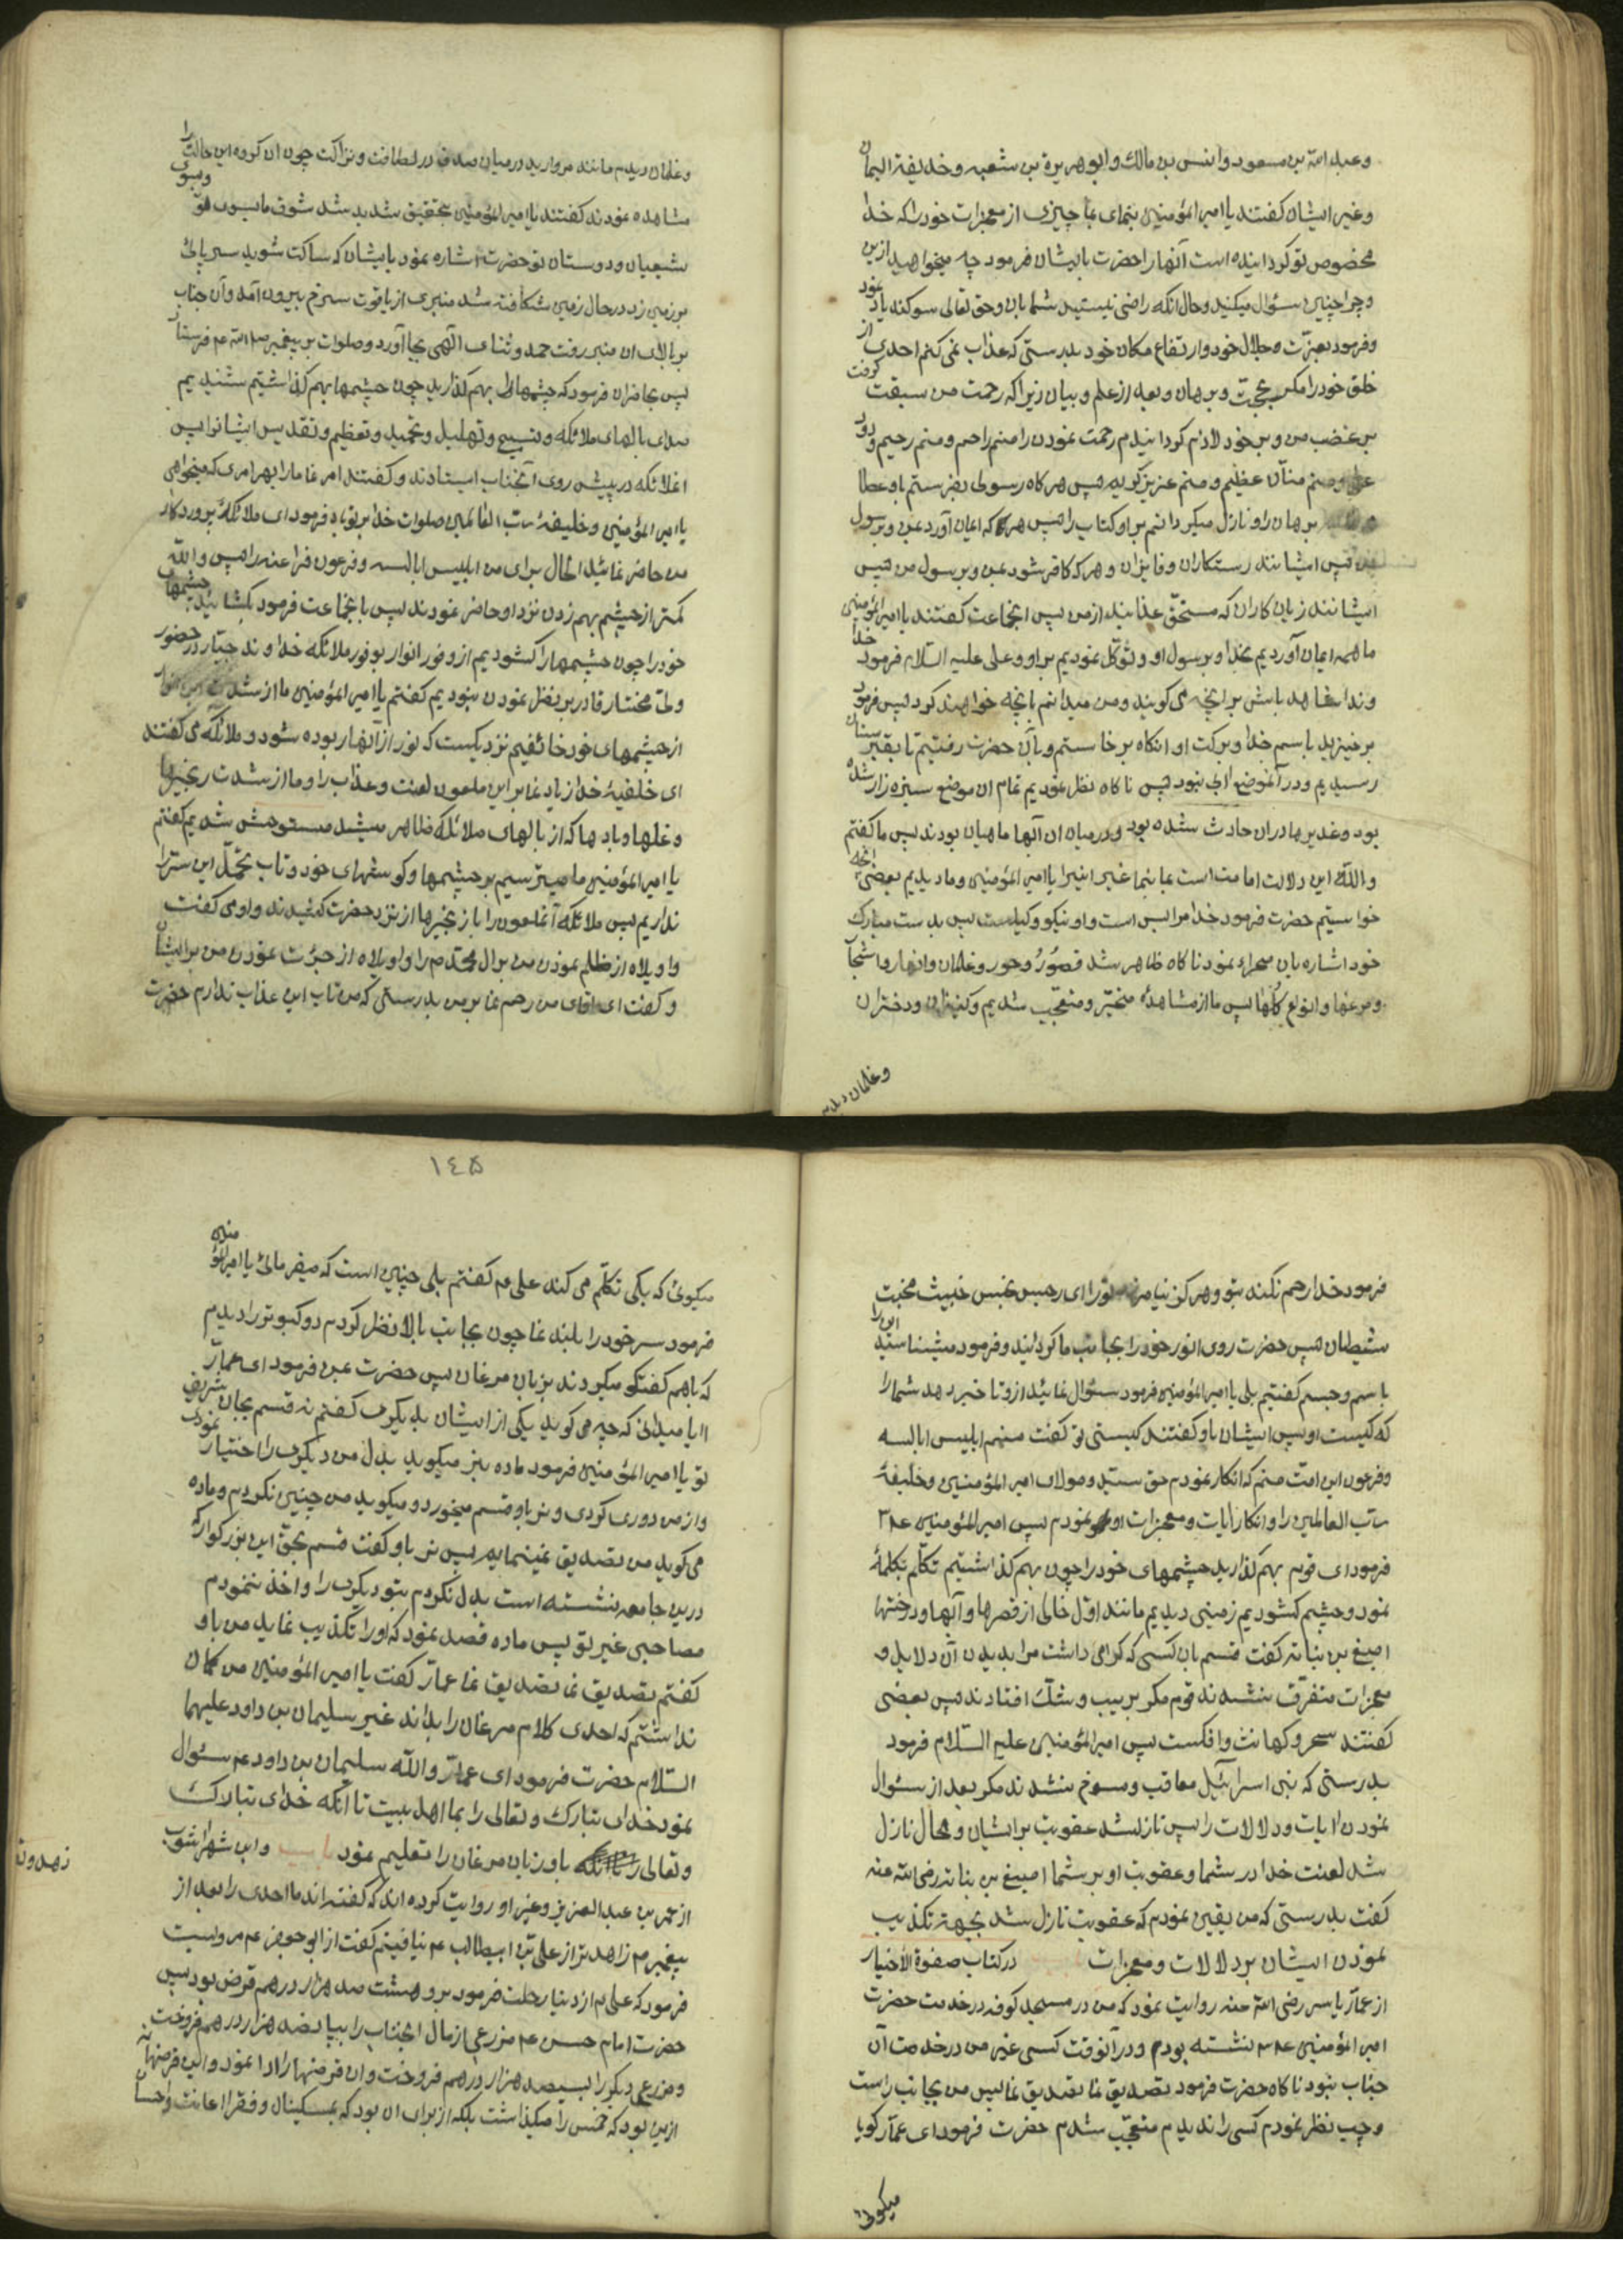 وعبد الله بن مسعود وانس بن مالك وابو هریرة بن شعبه وخدیفة الیمان
وغیر ایشان گفتند یا امیر المؤمنین بنمای بما چیزی از معجزات خود را که خدا
مخصوص تو گردانیده است آنها را حضرت بایشان فرمود چه میخواهید ازین
و چرا چنین سئوال میکنید وحال انکه راضی نیستید شما بان وحق تعالی سوکند یاد نمود
وفرمود بعزت وجلال خود وارتفاع مکان خود بدرستی که عذاب نمی کنم احدی از
خلق خود را مگر بحجت وبرهان وبعد از علم وبیان زیرا که رحمت من سبقت گرفت
بر غضب من وبر خود لازم گردانیدم رحمت نمودن را منم راحم ومنم رحیم و
منم منان عظیم ومنم عزیز کریم پس هرکاه رسولی بفرستم باو عطا
برهان را ونازل میکردانم بر او کتاب را پس هر که ایمان آورد بمن وبرسول
من پس ایشانند رستکاران وفایزان وهر که کافر شود بمن وبرسول من پس
ایشانند زیان کاران که مستحق عذابند از من پس انجماعت گفتند یا امیر المؤمنین
ما همه ایمان آوردیم بخدا وبرسول او وتوکل نمودیم بر او وعلی علیه السلام فرمود خدا
وندا شاهد باش بر انچه می گویند ومن میدانم بانچه خواهند کرد پس فرمود
برخیزید باسم خدا وبرکت او انکاه برخاستم وبا آن حضرت رفتیم تا بقبرستان
رسیدیم ودر آنموضع آبی نبود پس ناکاه نظر نمودیم تمام ان موضع سبزه زار شده
بود وغدیرها دران حادث شده بود ودر میان ان آبها ماهیان بودند پس ما گفتم
والله این دلالت امامت است بما بنما غیر اینرا یا امیر المؤمنین وما دیدیم بعضی انچه
خواستیم حضرت فرمود خدا مرا بس است واو نیکو وکیلست پس بدست مبارک
خود اشاره بان صحراء نمود ناکاه ظاهر شد قصور وحور وغلمان وانهار واشجار
ومرغها وانواع گلها پس ما از مشاهده متحیر ومتعجب شدیم وکنیزان ودختران
وغلمان دیدیم
وغلمان دیدم مانند مروارید در میان صدف در لطافت ونزاکت چون ان کروه این حالت را
مشاهده نمودند گفتند یا امیر المؤمنین بتحقیق شدید شد شوق ما بسوی تو وبسوی
شیعیان ودوستان تو حضرت اشاره نمود بایشان که ساکت شوید سر پای
بر زمین زد در حال زمین شکافته شد منبری از یاقوت سرخ بیرون آمد وآن جناب
بر بالای ان منبر رفت حمد وثنای آلهی بجا آورد وصلوات بر پیغمبر صلی الله عم فرستاد
پس بحاضران فرمود که چشمها را بهم گذارید چون چشمها بهم گذاشتیم شنیدیم
صدای بالهای ملائکه وتسبیح وتهلیل وتحمید وتعظیم وتقدیس ایشانرا پس
انملائکه در پیش روی آنجناب ایستادند وگفتند امر نما ما را بهر امری که میخواهی
یا امیر المؤمنین وخلیفهٔ رب العالمین صلوات خدا بر تو باد فرمود ای ملائکهٔ پروردکار
من حاضر نمائید الحال برای من ابلیس ابالسه وفرعون فراعنه را پس والله
کمتر از چشم بهم زدن نزد او حاضر نمودند پس با نجماعت فرمود بکشائید چشمها
خود را چون چشمها را کشودیم از وفور انوار بوفور ملائکه خداوند جبار در حضور
ولی مختار قادر بر نظر نمودن نبودیم گفتم یا امیر المؤمنین ما از شدت این انوار
از چشمهای خود خائفیم نزدیکست که نور از آنها ربوده شود وملائکه می گفتند
ای خلیفهٔ خدا زیاد نما بر این ملعون لعنت وعذاب را وما از شدت زنجیرها
وغلها وبادها که از بالهای ملائکه ظاهر میشد مستوحش شدیم گفتم
یا امیر المؤمنین ما میترسیم بر چشمها وکوشهای خود وتاب تحمل این ستر را
نداریم پس ملائکه آنملعون را با زنجیرها از نزد حضرت کشیدند واو می گفت
واویلاه از ظلم نمودن من بر ال محمد م را واویلاه از جرئت نمودن من بر ایشان
وگفت ای اقای من رحم نما بر من بدرستی که من تاب این عذاب ندارم حضرت
فرمود خدا رحم نکند بتو وهرکز نیامرزد تو را ای رجس نجس خبیث مخبث
شیطان پس حضرت روی انور خود را بجانب ما کردانید وفرمود میشناسید این را
باسم وجسم گفتیم بلی یا امیر المؤمنین فرمود سئوال نمائید ازو تا خبر دهد شما را
که کیست او پس ایشان باو گفتند کیستی تو گفت منم ابلیس ابالسه
وفرعون این امت منم که انکار نمودم حق سید ومولای امیر المؤمنین وخلیفهٔ
رب العالمین را وانکار ایات ومعجزات او نمودم پس امیر المؤمنین ع م
فرمود ای قوم بهم گذارید چشمهای خود را چون بهم گذاشتیم تکلم بکلمهٔ
نمود وچشم کشودیم زمینی دیدیم مانند اول خالی از قصرها وآبها ودرختها
اصبغ بن نباته گفت قسم بان کسی که کرامی داشت مرا بدیدن آن دلایل و
معجزات متفرق نشدند قوم مکر بریب وشک افتادند پس بعضی
گفتند سحر وکهانت وافکست پس امیر المؤمنین علیه السلام فرمود
بدرستی که بنی اسرائیل معاقب ومسوخ نشدند مکر بعد از سئوال
نمودن ایات ودلالات را پس نازلشد عقوبت بر ایشان ومحال نازل
شد لعنت خدا در شما وعقوبت او بر شما اصبغ بن نباته رضی الله عنه
گفت بدرستی که من یقین نمودم که عقوبت نازل شد بجهة تکذیب
نمودن ایشان بر دلالات ومعجزات در کتاب صفوة الأخیار
از عمار یاسر رضی الله عنه روایت نمود که من در مسجد کوفه در خدمت حضرت
امیر المؤمنین ع م نشسته بودم ودر آنوقت کسی غیر من در خدمت آن
جناب نبود ناکاه حضرت فرمود تصدیق نما تصدیق نما پس من بجانب راست
وچپ نظر نمودم کسی را ندیدم متعجب شدم حضرت فرمود ای عمار کویا
میکوئی
١٤٥
میکوئی که یکی تکلم می کند علی م گفتم بلی چنین است که میفرمائی یا امیر المؤمنین
فرمود سر خود را بلند نما چون بجانب بالا نظر کردم دو کبوتر را دیدم
که باهم گفتگو میکردند بزبان مرغان پس حضرت بمن فرمود ای عمار
ایا میدانی که چه می کوید یکی از ایشان بدیکری گفتم نه قسم بجان شریف
تو یا امیر المؤمنین فرمود ماده بنر میکوید بدل من دیکری را اختیار نمودی
واز من دوری کردی ونر باو قسم میخورد ومیکوید من چنین نکردم وماده
می کوید من تصدیق نمینمایم پس نر باو گفت قسم بحق این بزرکوار که
درین جامع نشسته است بدل نکردم بتو دیکری را واخذ ننمودم
مصاحبی غیر تو پس ماده قصد نمود که او را تکذیب نماید من باو
گفتم تصدیق نما تصدیق نما عمار گفت یا امیر المؤمنین من کمان
نداشتم که احدی کلام مرغان را بداند غیر سلیمان بن داود علیهما
السلام حضرت فرمود ای عمار والله سلیمان بن داود عم سئوال
نمود خدای تبارک وتعالی را بما اهل بیت تا آنکه خدای تبارک
وتعالی باو زبان مرغان را تعلیم نمود وابن شهراشوب
از عمر بن عبد العزیز وغیر او روایت کرده اند که گفته اند ما احدی را بعد از
پیغمبر م زاهد تر از علی بن ابیطالب عم نیافتیم گفت از ابو جعفر عم مرویست
فرمود که علی م از دنیا رحلت فرمود بر وهشت صد هزار درهم قرض بود پس
حضرت امام حسن عم مزرعی از مال انجناب را بپانصد هزار درهم فروخت
ومزرعی دیکر را بسیصد هزار درهم فروخت وان قرضها را ادا نمود واین قرضها نه
ازین بود که خمس را میکذاشت بلکه از برای ان بود که بمسکینان وفقرا اعانت واحسان
زهد وتق